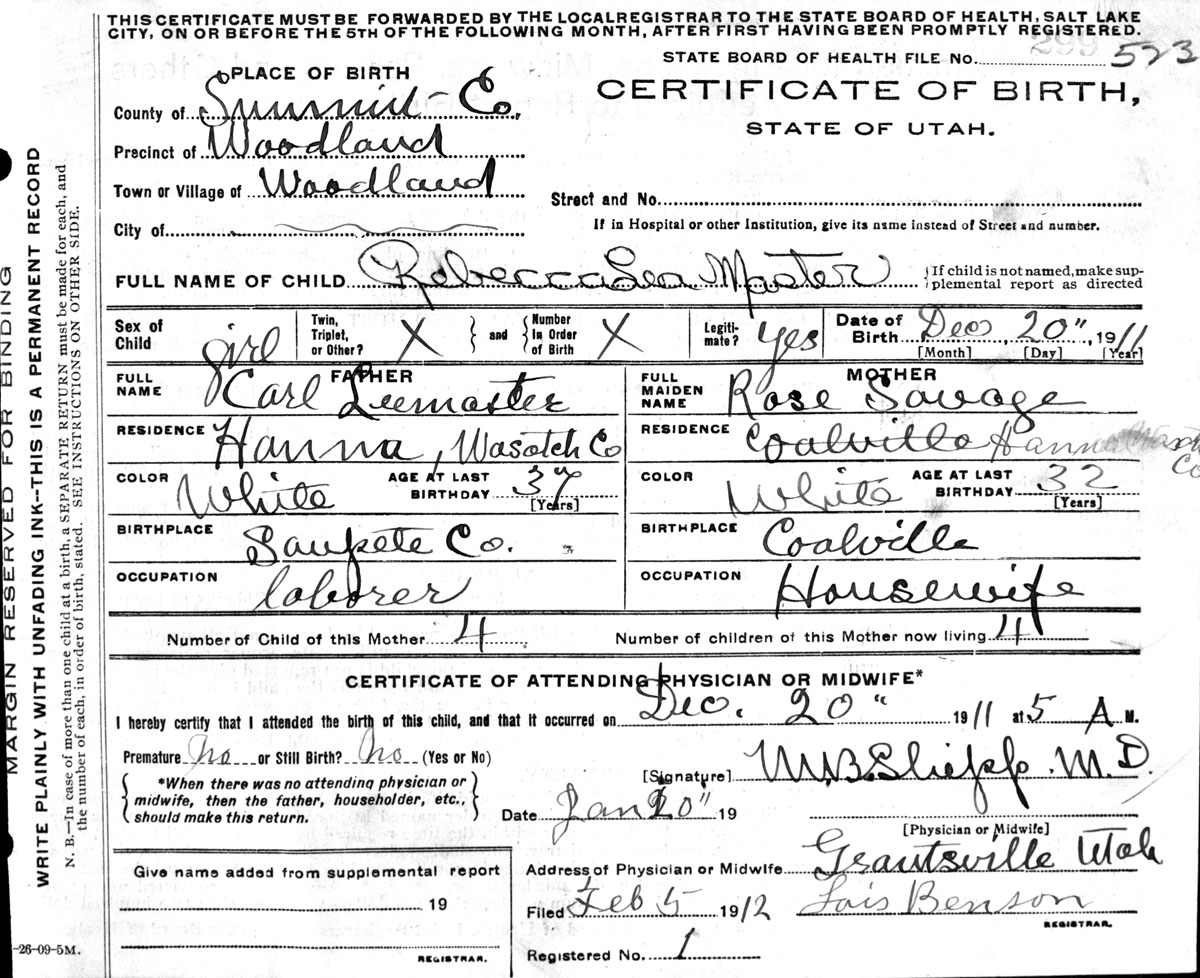 THIS CERTIFICATE MUST BE FORWARDED BY THE LOCAL REGISTRAR TO THE STATE BOARD OF HEALTH, SALT LAKE
CITY, ON OR BEFORE THE 5TH OF THE FOLLOWING MONTH, AFTER FIRST HAVING BEEN PROMPTLY REGISTERED.
299
STATE BOARD OF HEALTH FILE No. 523
PLACE OF BIRTH
CERTIFICATE OF BIRTH,
STATE OF UTAH.
County of Summit Co,
Precinct of Woodland
Town or Village of Woodland
Street and No.
City of
If in Hospital or other Institution, give its name instead of Street and number.
FULL NAME OF CHILD Rebecca Lea Master
{If child is not named, make sup-
plemental report as directed
Sex of Child girl
Twin, Triplet, or Other? X } and { Number In Order of Birth X
Legiti-mate? yes
Date of Birth Dec, 20", 1911
[Month] [Day] [Year]
FATHER
FULL NAME Carl Leemaster
RESIDENCE Hanna, Wasatch Co
COLOR White AGE AT LAST BIRTHDAY 37 [Years]
BIRTHPLACE Sanpete Co.
OCCUPATION laborer
MOTHER
FULL MAIDEN NAME Rose Savage
RESIDENCE Coalville Hanna Wasatch Co
COLOR White AGE AT LAST BIRTHDAY 32 [Years]
BIRTHPLACE Coalville
OCCUPATION Housewife
Number of Child of this Mother 4 Number of children of this Mother now living 4
CERTIFICATE OF ATTENDING PHYSICIAN OR MIDWIFE*
I hereby certify that I attended the birth of this child, and that it occurred on Dec. 20" 1911 at 5 A M.
Premature no or Still Birth? No (Yes or No)
*When there was no attending physician or
midwife, then the father, householder, etc.,
should make this return.
[Signature] M. D.
Date Jan 20" 19
[Physician or Midwife]
Give name added from supplemental report
19
REGISTRAR.
Address of Physician or Midwife Grantsville Utah
Filed Feb 5 1912 Lois Benson
REGISTRAR.
Registered No. 1
-26-09-5M.
MARGIN RESERVED FOR BINDING
WRITE PLAINLY WITH UNFADING INK--THIS IS A PERMANENT RECORD
N. B.—In case of more than one child at a birth, a SEPARATE RETURN must be made for each, and
the number of each, in order of birth, stated. SEE INSTRUCTIONS ON OTHER SIDE.